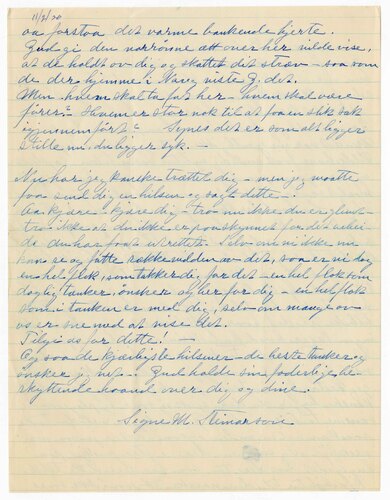 11/2/20
aa forstaa det varme bankende hjerte.
Gud gi den varrønne ætt over her vilde vise,
at de holdt ov dig og skattet dit stræv – saa som
de der hjemme i Norge viste G. det.
Men hvem skal ta fat her – hvem skal være
fører? Hvem er stor nok til at faa en slik sak
igjennemført? Synes det er som alt ligger
stille nu, du ligger syk. –
Nu har jeg kanske trættet dig – men jeg maatte
faa send dig en hilsen og sagt dette –
Aa kjære – kjære dig – tro nu ikke du er glemt –
tro ikke at du ikke er paaskjønnet for det arbei
de du har faat utrettet. Selv om vi ikke nu
kan se og fatte rækkevidden av det, saa er vi dog
en hel flok, som takker dig for det – en hel flok som
daglig tænker, ønsker og ber for dig – en hel flok
som i tanken er med dig, selv om mange ov
os er sene med at vise det.
Tilgi os for dette! –
Og saa de kjærligste hilsener – de beste tanker og
ønsker j. vet – Gud holde sin faderlige be-
skyttende haand over dig og dine.
Signe M.